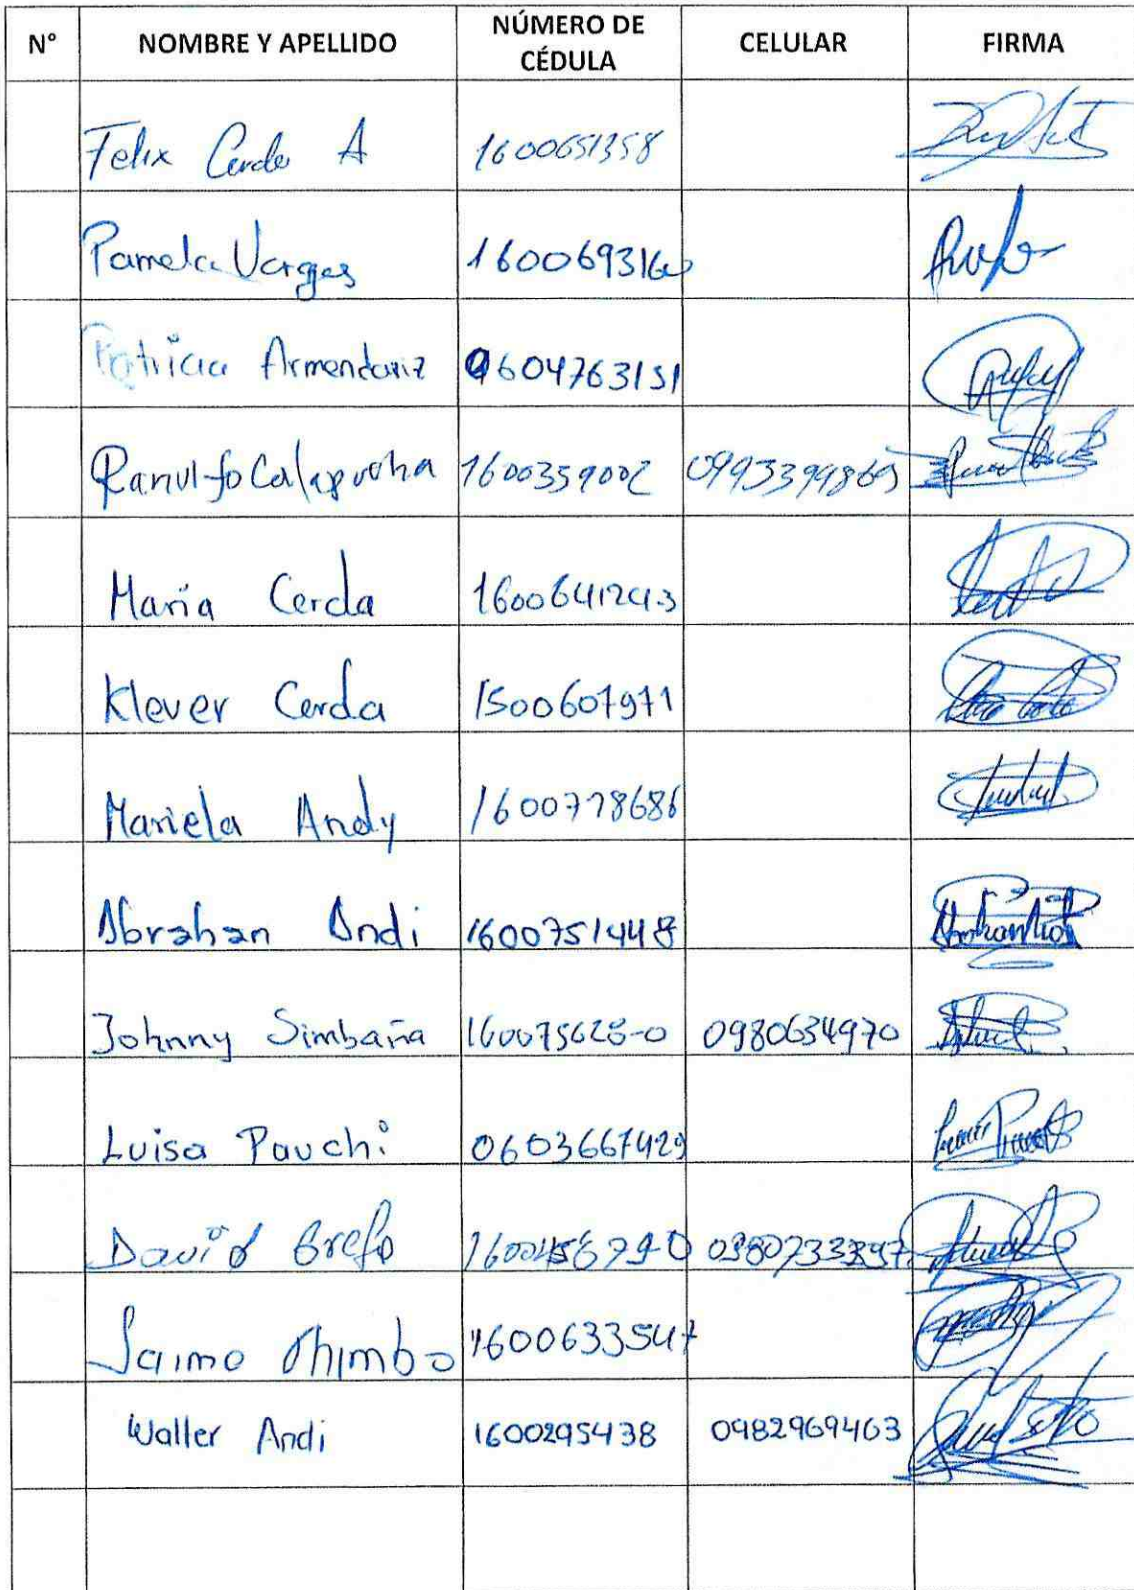 N° NOMBRE Y APELLIDO NÚMERO DE CÉDULA CELULAR FIRMA
Felix Cerda A 1600651358
Pamela Vargas 1600693160
Patricia Armendariz 0604763151
Ranulfo Calapucha 1600359002 0993399869
Maria Cerda 1600641243
Klever Cerda 1500607971
Mariela Andy 1600778686
Abrahan Andi 1600751448
Johnny Simbaña 160075628-0 0980634970
Luisa Pauchi 0603667429
David Grefa
Jaime Chimbo 1600633547
Waller Andi 1600295438 0982969463